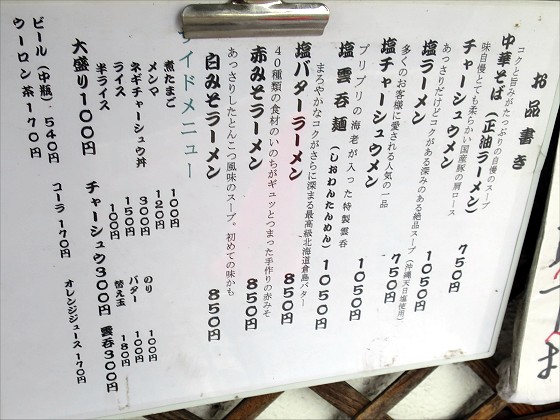 お品書き
コクと旨みがたっぷりの自慢のスープ
中華そば（正油ラーメン） 750円
味自慢とても柔らかい国産豚の肩ロース
チャーシュウメン 1050円
あっさりだけどコクがある深みのある絶品スープ（沖縄天日塩使用）
塩ラーメン 750円
多くのお客様に愛される人気の一品
塩チャーシュウメン 1050円
プリプリの海老が入った特製雲呑
塩雲呑麺（しおわんたんめん） 1050円
まろやかなコクがさらに深まる最高級北海道倉島バター
塩バターラーメン 850円
40種類の食材のいのちがギュッとつまった手作りの赤みそ
赤みそラーメン 850円
あっさりしたとんこつ風味のスープ。初めての味かも
白みそラーメン 850円
イドメニュー
煮たまご 100円
メンマ 120円
ネギチャーシュウ丼 300円
ライス 150円
半ライス 100円
のり 100円
バター 100円
替え玉 180円
大盛り100円
チャーシュウ300円
雲呑300円
ビール（中瓶）540円
コーラ 170円
オレンジジュース 170円
ウーロン茶170円